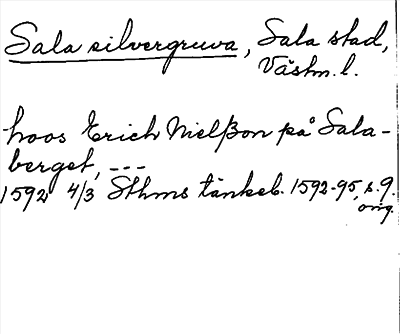 Sala silvergruva, Sala stad,
Västm. l.
hoos Erich Nielßon på Sala-
berget, ---
1592 4/3 Sthms tänkeb. 1592-95, s. 9.
orig.